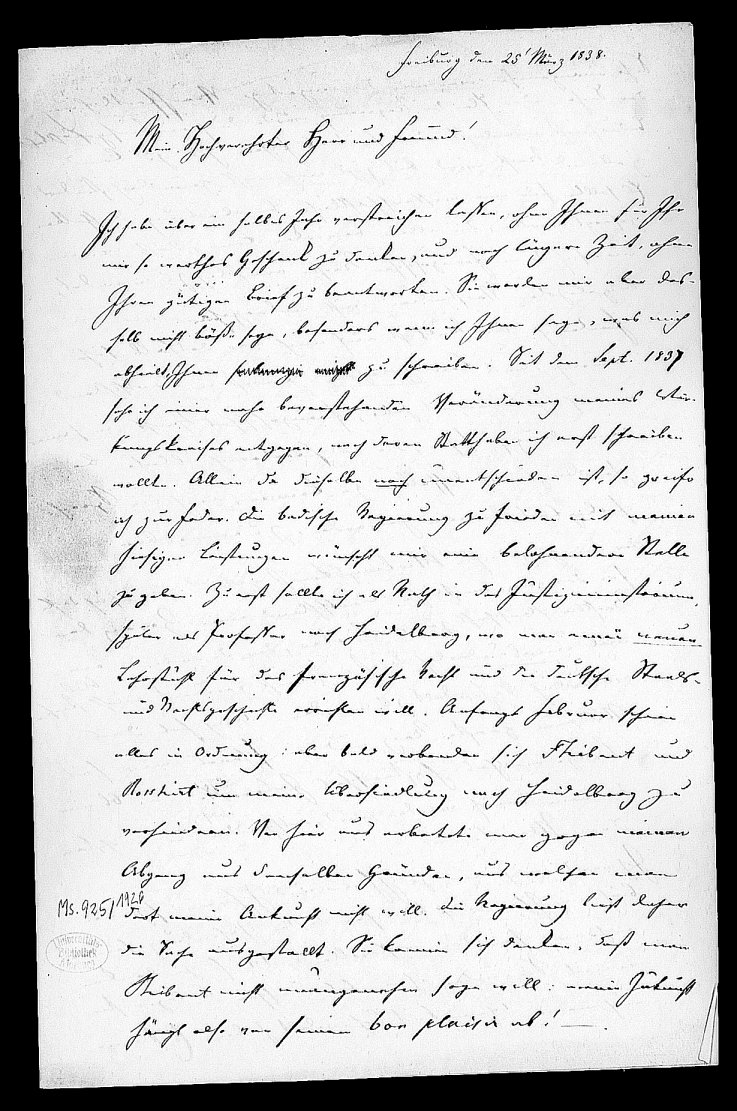 Freiburg den 25' März 1838.
Mein Hochverehrter Herr und Freund!
Ich habe über ein halbes Jahr verstreichen lassen, ohne Ihnen für Ihr
mir so werthes Geschenk zu danken, und noch längere Zeit, ohne
Ihren gütigen Brief zu beantworten. Sie werden mir aber des-
halb nicht böse seyn, besonders wenn ich Ihnen sage, was mich
abhielt, Ihnen zu schreiben. Seit dem Sept. 1837
sehe ich einer nahe bevorstehenden Veränderung meines Wir-
kungskreises entgegen, nach deren Statthaben ich erst schreiben
wollte. Allein da dieselbe noch unentschieden ist, so greife
ich zur Feder. Die badische Regierung zufrieden mit meinen
hiesigen Leistungen wünscht mir eine belohnendere Stelle
zu geben. Zuerst sollte ich als Rath in das Justizministerium,
später als Professor nach Heidelberg, wo man einen neuen
Lehrstuhl für das französische Recht und die deutsche Staats-
und Rechtsgeschichte errichten will. Anfangs Februar schien
alles in Ordnung: aber bald verbanden sich Thibaut und
Rosshirt um meine Übersiedlung nach Heidelberg zu
verhindern. Von hier aus arbeitete man gegen meinen
Abgang aus denselben Gründen, aus welchen man
dort meine Ankunft nicht will. Die Regierung ließ daher
die Sache ausgestellt. Sie können sich denken, daß man
Thibaut nicht unangenehm seyn will: meine Zukunft
hängt also von seinem bon plaisir ab! —
Ms. 925/1926
Universitäts
Bibliothek